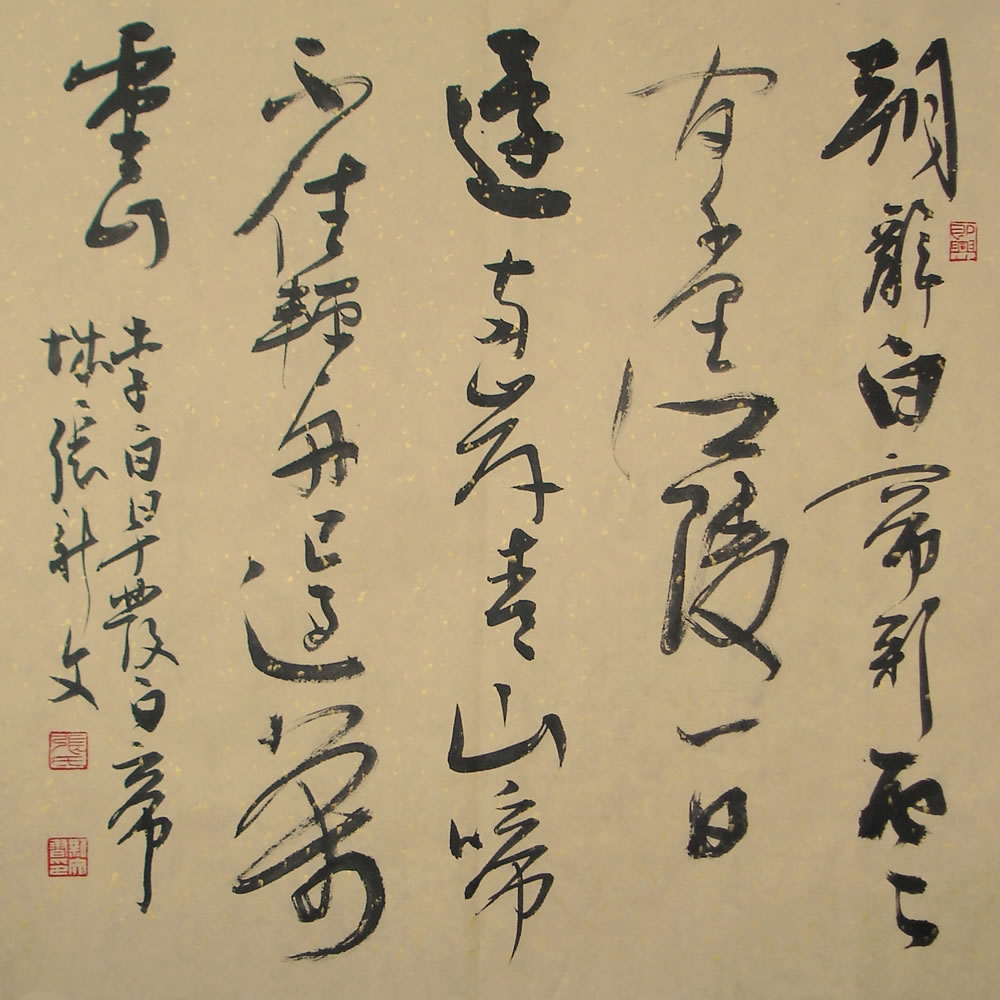 朝辭白帝彩雲
間千里江陵一日
還兩岸青山啼
不住輕舟已過萬
重山
李白早發白帝
城張新文